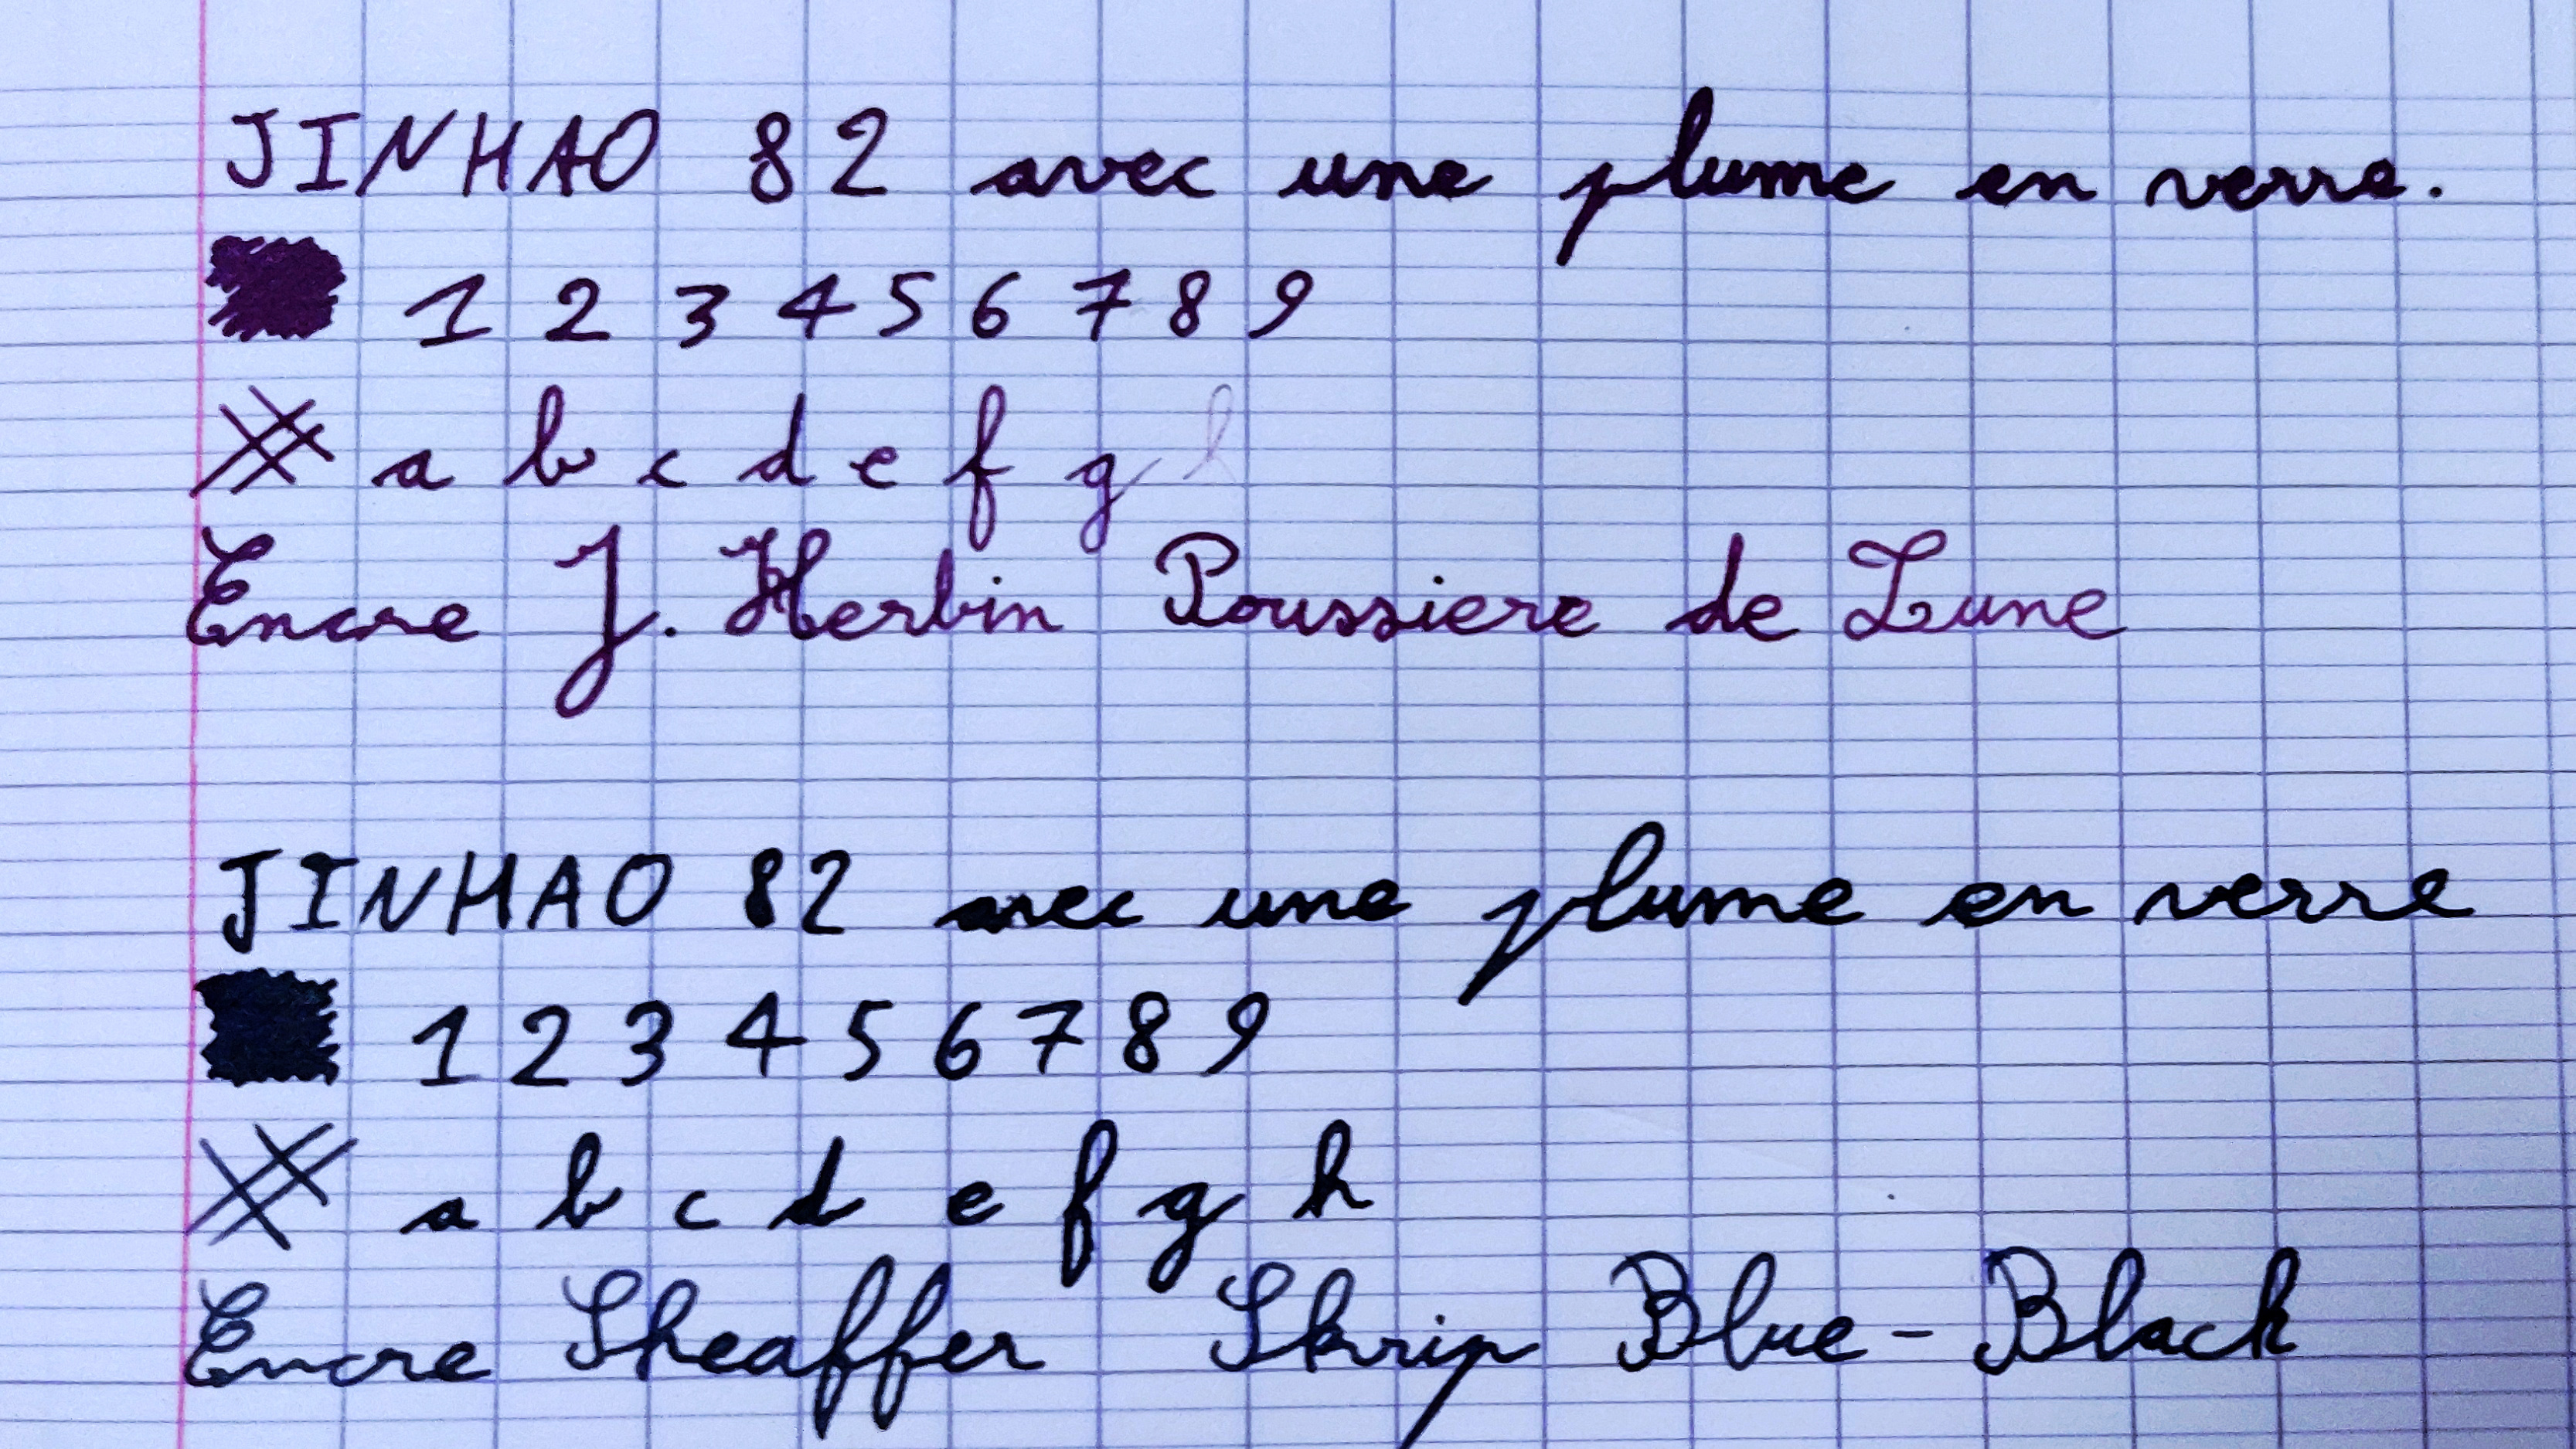 JINHAO 82 avec une plume en verre.
1 2 3 4 5 6 7 8 9
a b c d e f g h
Encre J. Herbin Poussiere de Lune
JINHAO 82 avec une plume en verre
1 2 3 4 5 6 7 8 9
a b c d e f g h
Encre Sheaffer Skrip Blue-Black